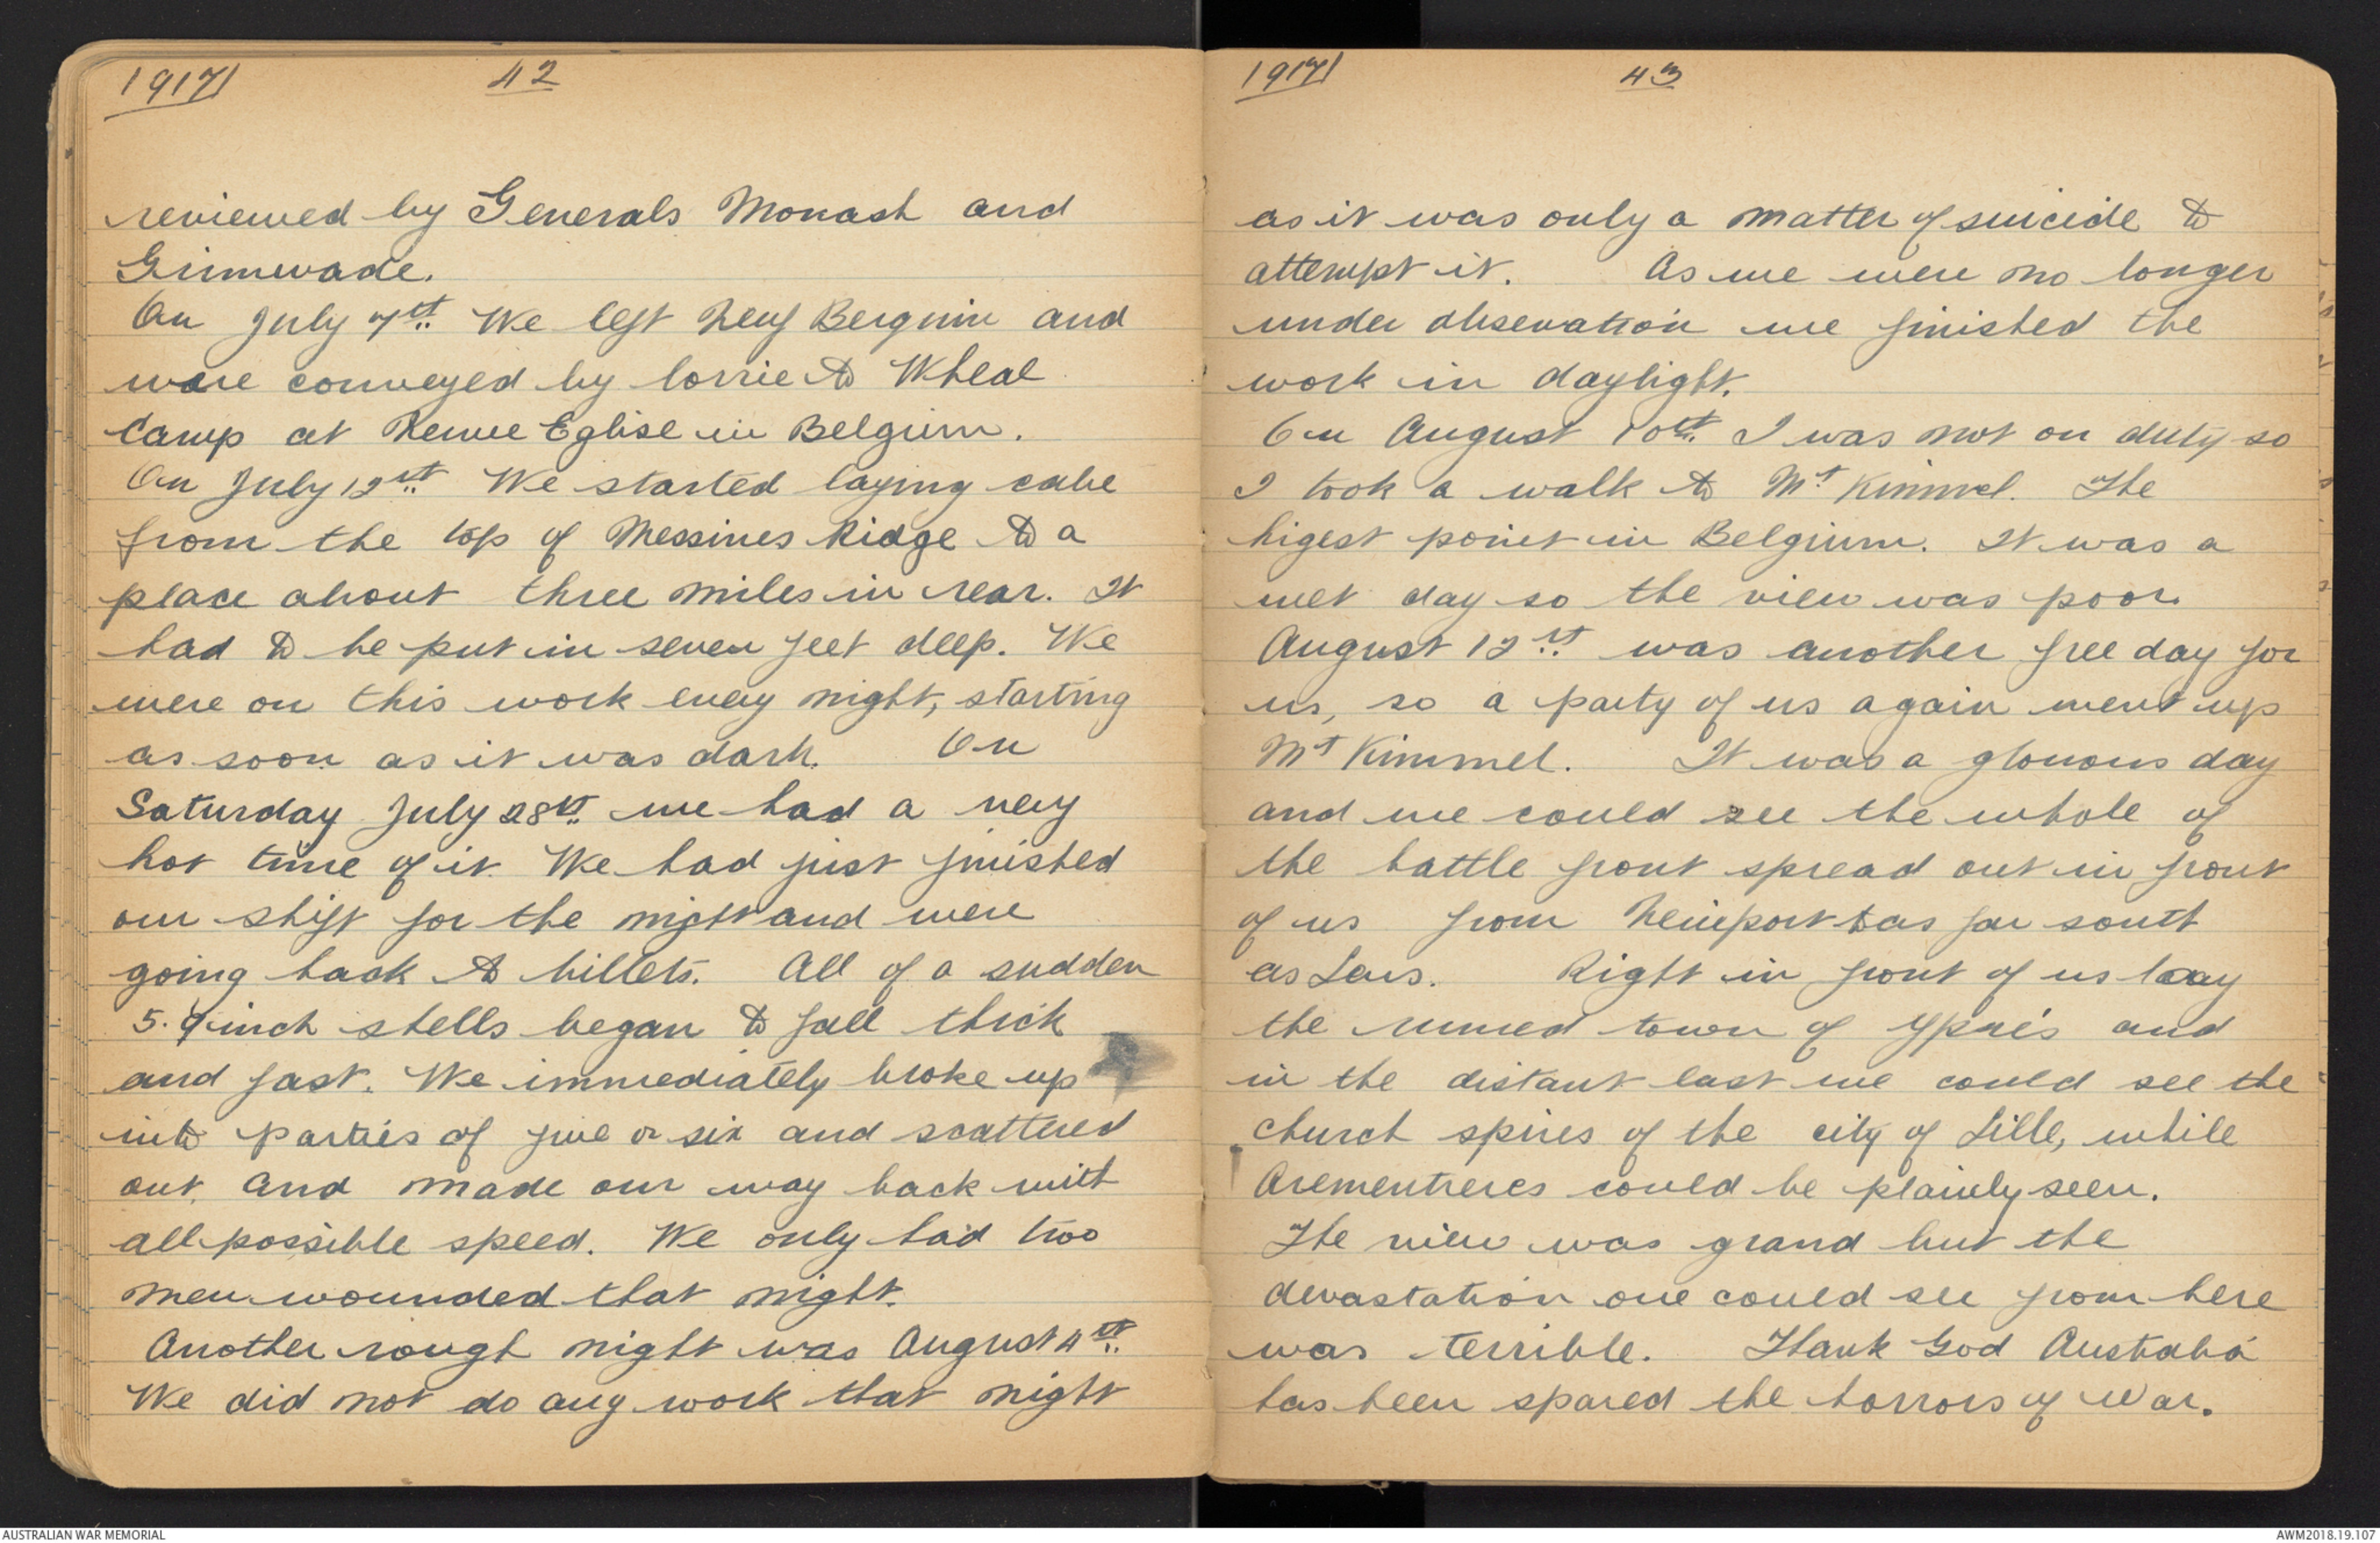 1917/
42
reviewed by Generals Monash and
Grimwade.
On July 7th. We left Neuf Berquin and
were conveyed by lorrie to Wheal
Camp at Neuve Eglise in Belgium.
On July 12th. We started laying cable
from the top of Messines Ridge to a
place about three miles in rear. It
had to be put in seven feet deep. We
were on this work every night, starting
as soon as it was dark. On
Saturday July 28th. we had a very
hot time of it. We had just finished
our shift for the night and were
going back to billets. All of a sudden
5.9 inch shells began to fall thick
and fast. We immediately broke up
into parties of five or six and scattered
out, and made our way back with
all possible speed. We only had two
men wounded that night.
Another rough night was August 4th.
We did not do any work that night
1917/
43
as it was only a matter of suicide to
attempt it. As we were no longer
under observation we finished the
work in daylight.
On August 10th. I was not on duty so
I took a walk to Mt Kimmel. The
higest point in Belgium. It was a
wet day so the view was poor.
August 12th. was another free day for
us, so a party of us again went up
Mt Kimmel. It was a glorious day
and we could see the whole of
the battle front spread out in front
of us from Neiuport to as far south
as Lens. Right in front of us lay
the ruined town of Ypres and
in the distant east we could see the
church spires of the city of Lille, while
Arementreres could be plainly seen.
The view was grand but the
devastation one could see from here
was terrible. Thank God Australia
has been spared the horrors of War.
AUSTRALIAN WAR MEMORIAL
AWM2018.19.107